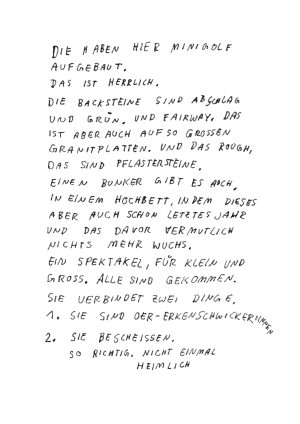 DIE HABEN HIER MINIGOLF
AUFGEBAUT.
DAS IST HERRLICH.
DIE BACKSTEINE SIND ABSCHLAG
UND GRÜN. UND FAIRWAY. DAS
IST ABER AUCH AUF SO GROSSEN
GRANITPLATTEN. UND DAS ROUGH,
DAS SIND PFLASTERSTEINE.
EINEN BUNKER GIBT ES AUCH.
IN EINEM HOCHBETT, IN DEM DIESES
ABER AUCH SCHON LETZTES JAHR
UND DAS DAVOR VERMUTLICH
NICHTS MEHR WUCHS.
EIN SPEKTAKEL, FÜR KLEIN UND
GROSS. ALLE SIND GEKOMMEN.
SIE VERBINDET ZWEI DINGE.
1. SIE SIND OER-ERKENSCHWICKERINNEN
2. SIE BESCHEISSEN.
SO RICHTIG. NICHT EINMAL
HEIMLICH